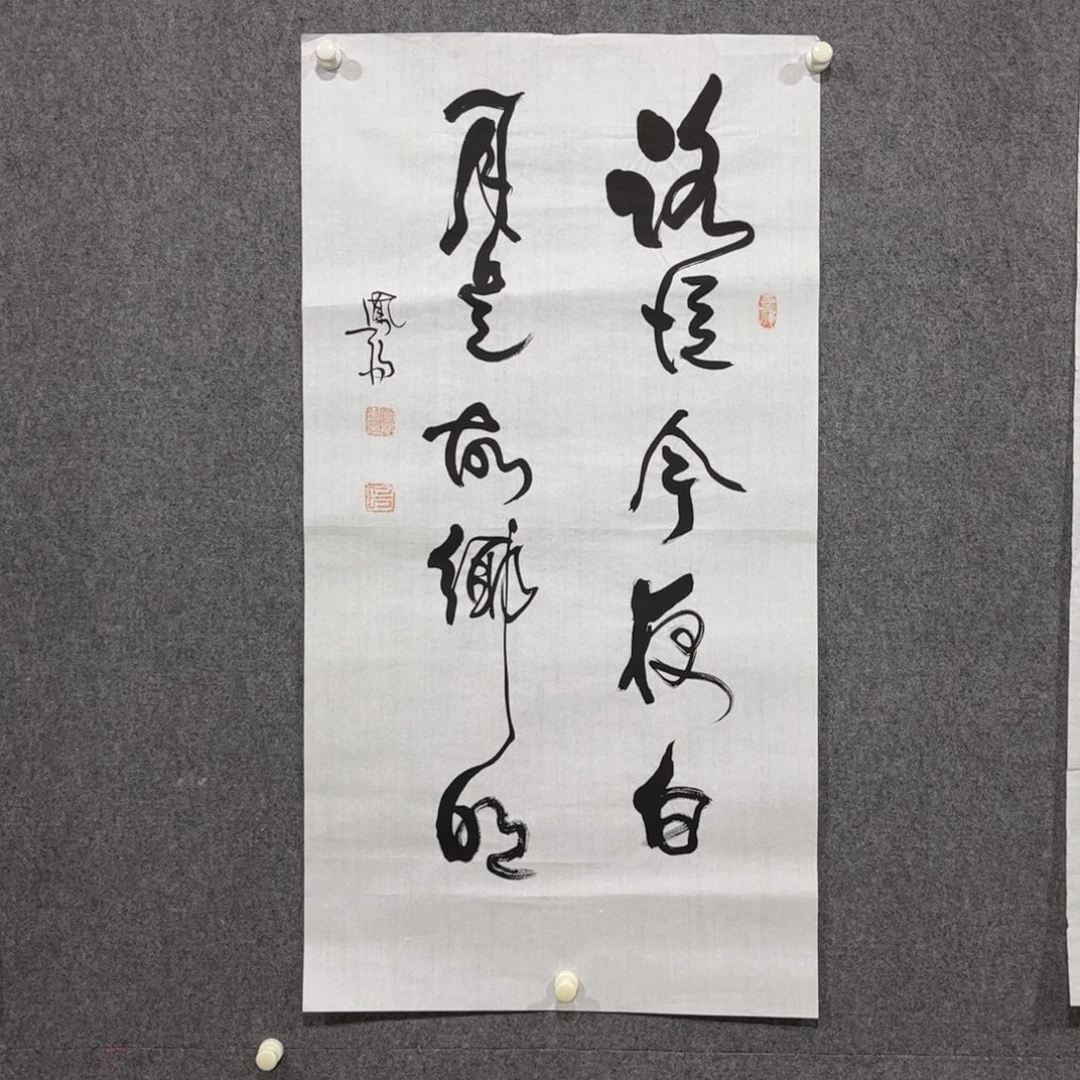 露從今夜白
月是故鄉明
鳳